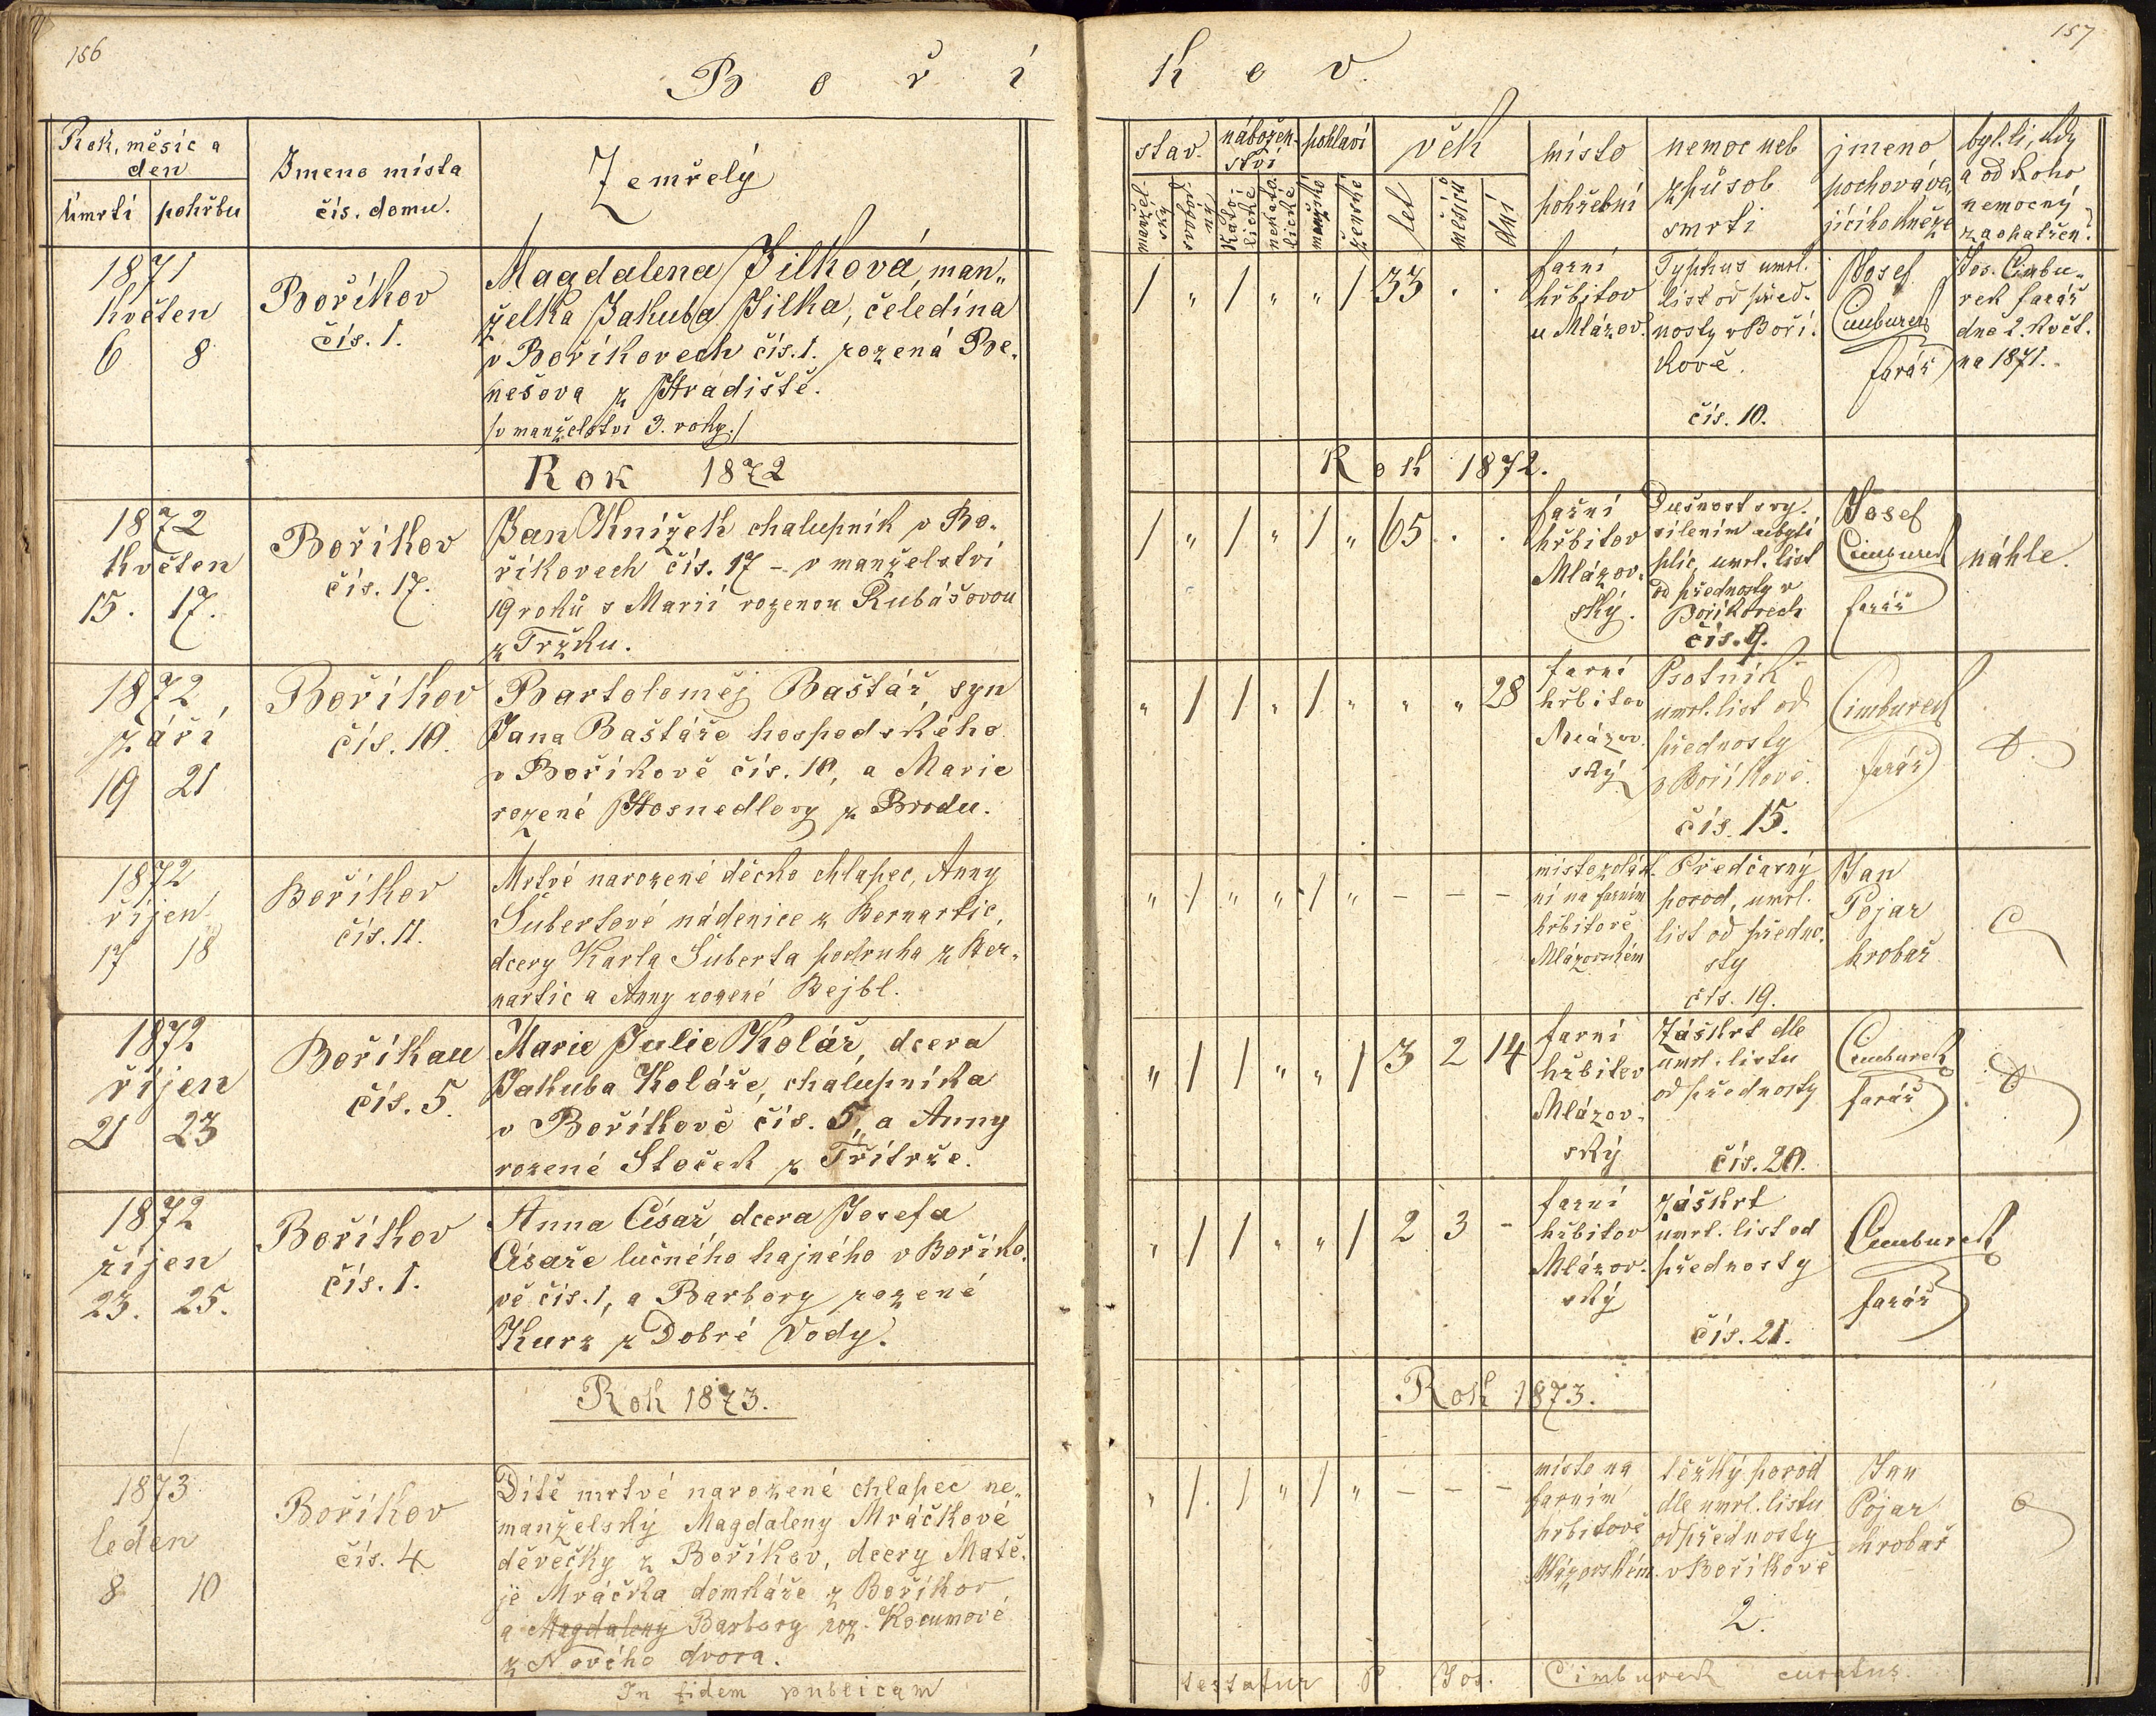 156
157
B o ř í
k o v.
Rok, měsíc a
den
Úmrtí pohřbu
Jmeno místa
čís. domu.
Zemřelý
stav. nábožen-
ství pohlaví věk
místo
pohřební
nemoc neb
způsob
smrti
jmeno
pochováva-
jícího kněze
byl-li, kdy
a od koho
nemocný
zaopatřen?
manžel-
ský svobod-
ný katol-
lické nekato-
lické mužské ženské let měsíců dní
1871
Květen
6 8
Bořikov
čís. 1.
Magdalena Jilková, man„
želka Jakuba Jilka, čeledína
v Boříkovech čís. 1. rozená Be-
nešova z Hradiště.
/v manželství 3. roky./
/ „ / „ „ / 33 . .
farní
hřbitov
u Mlázov.
Typhus umrl.
list od před-
nosty v Boří-
kově.
čís. 10.
Josef
Cimburek
farář
Jos. Cimbu„
rek farář
dne 2. Květ.
na 1871.
Rok 1872
Rok 1872.
1872
Květen
15. 17.
Boříkov
čís. 17.
Jan Knížek chalupník v Bo-
říkovech čís. 17 – v manželství
19 roků s Marií rozenou Rubášovou
z Tržku.
/ „ / „ / „ 65 . .
farní
hřbitov
Mlázov-
ský.
Dušnost s vy-
sílením ubytí
plic, umrl. list
od přednosty v
Boříkovech
čís. 9.
Josef
Cimburek
farář
náhle.
1872,
září
19 21
Boříkov
čís. 10.
Bartoloměj Baštář, syn
Jana Baštáře hospodského
v Boříkově čís. 10, a Marie
rozené Hosnedlovy z Brodu.
„ / / „ / „ „ „ 28
farní
hřbitov
Mlázov-
ský
Psotník
umrl. list od
přednosty
v Boříkově.
čís. 15.
Cimburek
farář
1872
říjen
17 18
Boříkov
čís. 11.
Mrtvé narozené děcko chlapec, Anny
Šubertové nádenice z Bernartic,
dcery Karla Šuberta podruha z Ber„
nartic a Anny rozené Bejbl.
„ / „ „ / „ – – –
místo zvlášt-
ní na farním
hřbitově
Mlázovském
Předčasný
porod, umrl.
list od předno-
sty
čís. 19.
Jan
Pojar
hrobař
1872
říjen
21 23
Boříkau
čís. 5.
Marie Julie Kolář, dcera
Jakuba Koláře, chalupníka
v Boříkově čís. 5, a Anny
rozené Stoček z Třítrže.
„ / / „ „ / 3 2 14
farní
hřbitov
Mlázov-
ský
Záškrt dle
umrl. listu
od přednosty
čís. 20.
Cimburek
farář
1872
říjen
23. 25.
Boříkov
čís. 1.
Anna Císař dcera Josefa
Císaře lučného hajného v Boříko-
vě čís. 1, a Barbory rozené
Kurz z Dobré Vody.
„ / / „ „ / 2 3 –
farní
hřbitov
Mlázov-
ský
záškrt
umrl. list od
přednosty
čís. 21.
Cimburek
farář
Rok 1873.
Rok 1873.
1873
leden
8 10
Boříkov
čís. 4
Dítě mrtvé narozené chlapec ne„
manželský Magdaleny Mráčkové
děvečky z Boříkov, dcery Matě-
je Mráčka domkáře z Boříkov
a Magdaleny Barbory roz. Kocumové
z Nového dvora.
„ / / „ / „ – – –
místo na
farním
hřbitově
Mlázovském
těžký porod
dle umrl. listu
od přednosty
v Boříkově
2.
Jan
Pojar
hrobař
In fidem publicam
testatur P. Jos. Cimburek curatus.